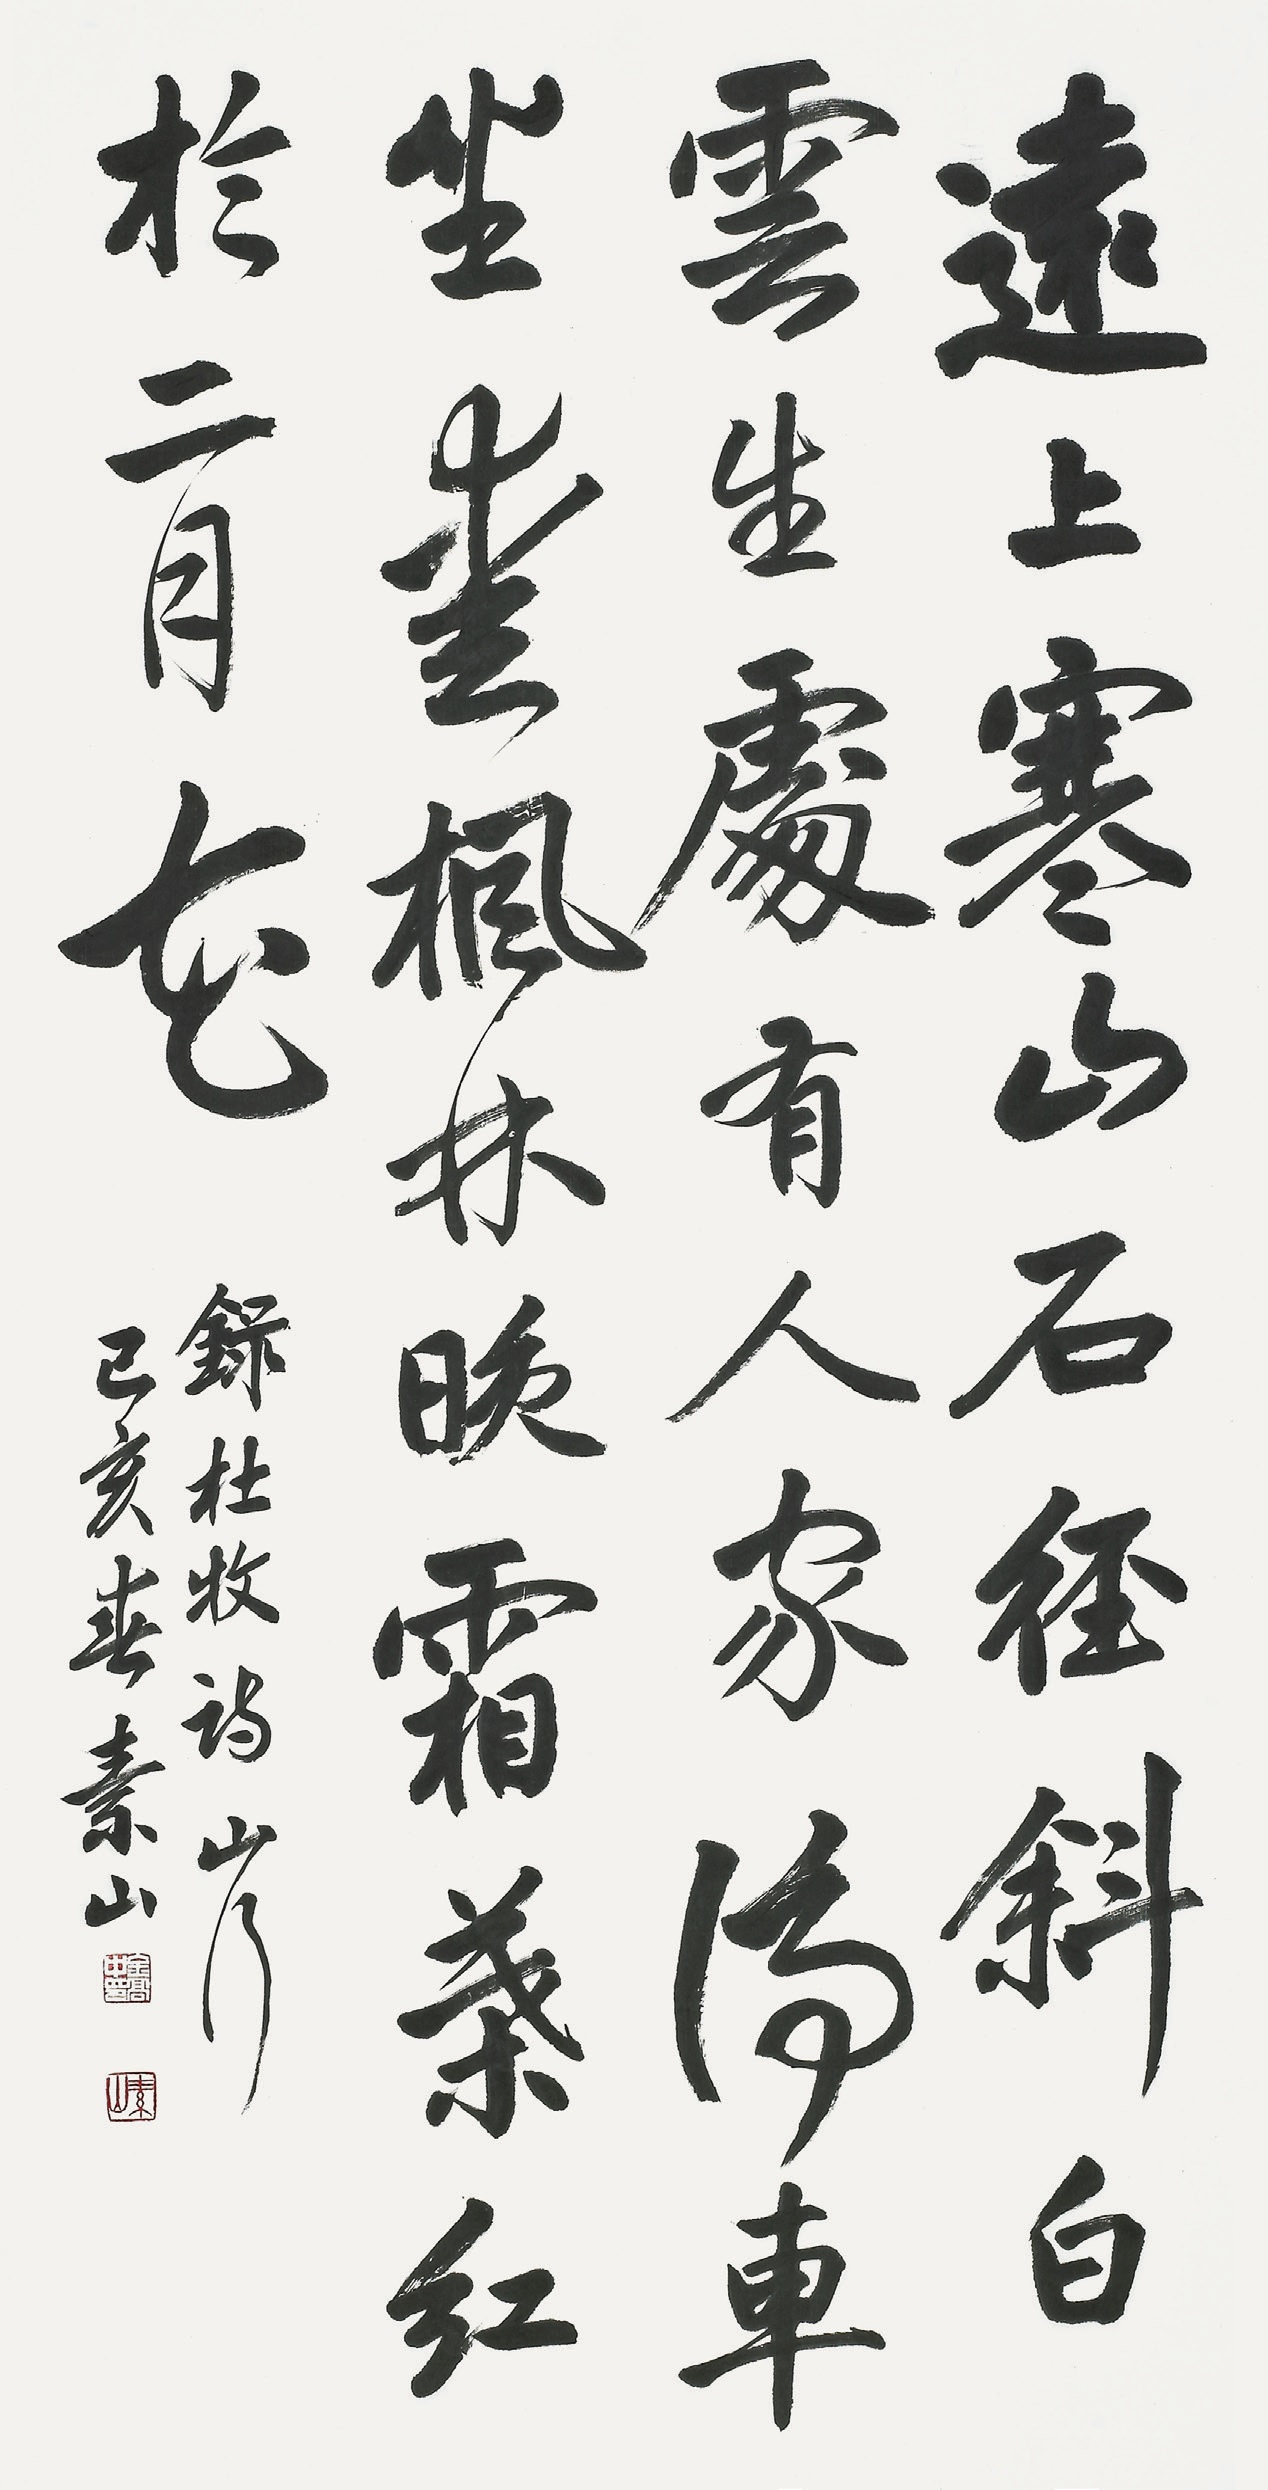 遠上寒山石徑斜白
雲生處有人家停車
坐愛楓林晚霜葉紅
於二月花
錄杜牧詩山行
己亥春素山
素山